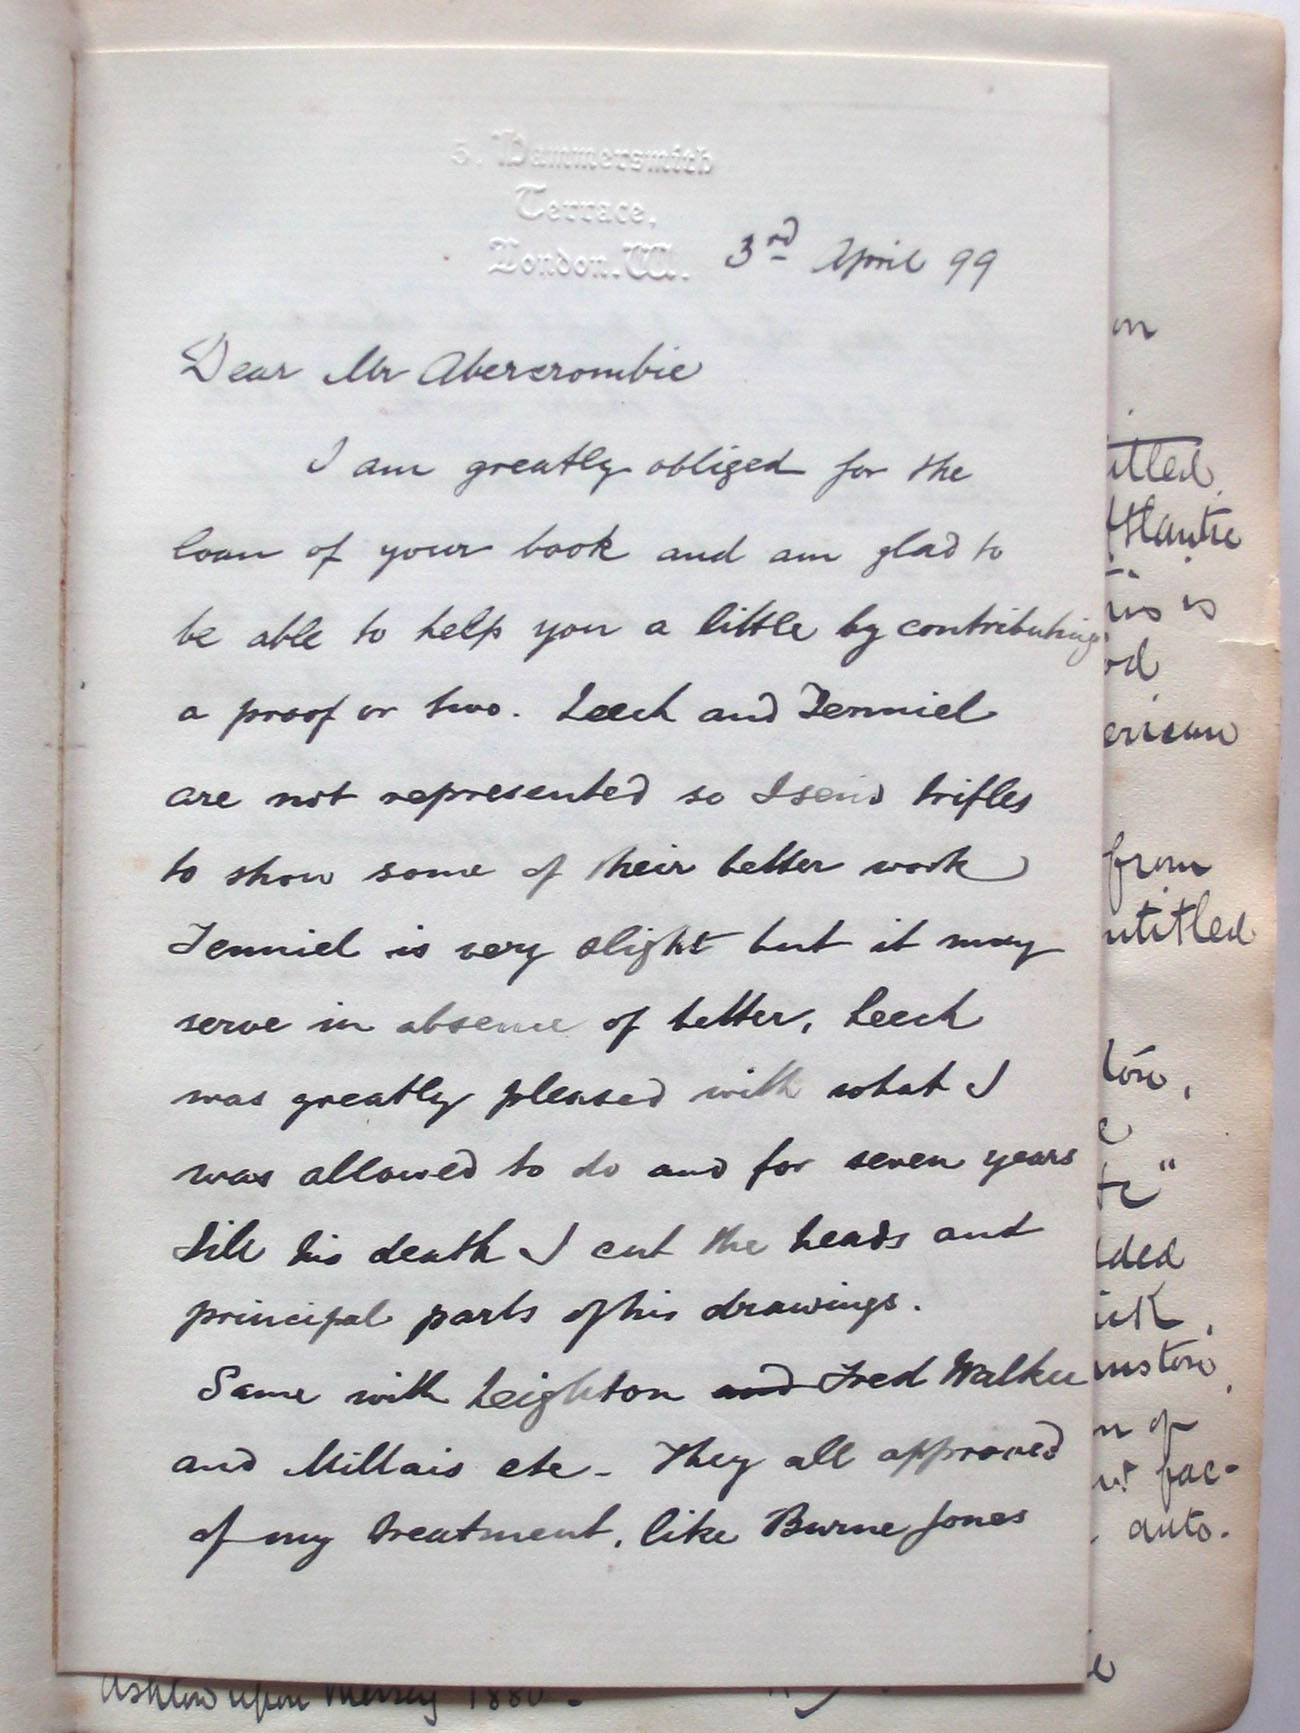 5. Hammersmith
Terrace,
London. W.
3rd April 99
Dear Mr Abercrombie
I am greatly obliged for the
loan of your book and am glad to
be able to help you a little by contributing
a proof or two. Leech and Tenniel
are not represented so I send trifles
to show some of their better work
Tenniel is very slight but it may
serve in absence of better. Leech
was greatly pleased with what I
was allowed to do and for seven years
till his death I cut the heads and
principal parts of his drawings.
Same with Leighton and Fred Walker
and Millais etc - They all approved
of my treatment, like Burne Jones
on
Atlantic
this is
from
auto.
Ashton upon Mersey 1880 -